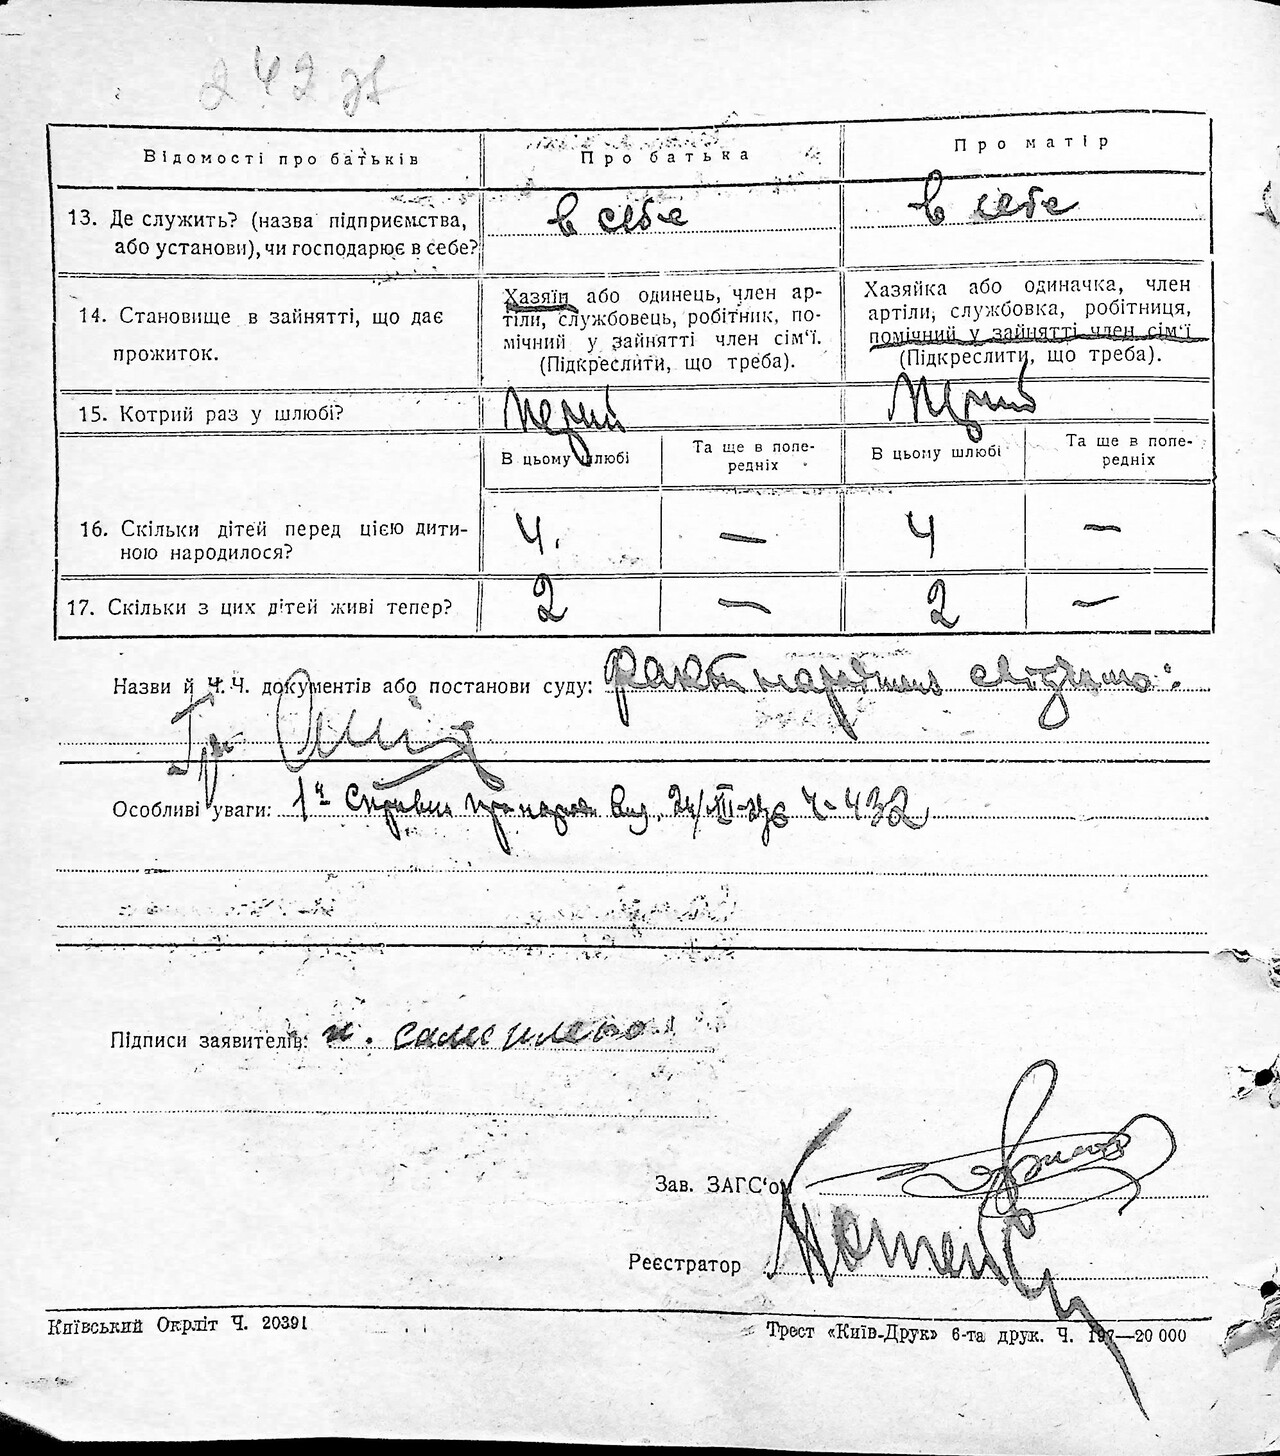 242
Відомості про батьків
Про батька
Про матір
13. Де служить? (назва підприємства,
або установи), чи господарює в себе?
в себе
в себе
14. Становище в зайнятті, що дає
прожиток.
Хазяїн або одинець, член ар-
тіли, службовець, робітник, по-
мічний у зайнятті член сім'ї.
(Підкреслити, що треба).
Хазяйка або одиначка, член
артіли, службовка, робітниця,
помічний у зайнятті член сім'ї
(Підкреслити, що треба).
15. Котрий раз у шлюбі?
Перший
Перший
В цьому шлюбі
Та ще в попе-
редніх
В цьому шлюбі
Та ще в попе-
редніх
16. Скільки дітей перед цією дити-
ною народилося?
4.
—
4
—
17. Скільки з цих дітей живі тепер?
2
—
2
—
Назви й Ч.Ч. документів або постанови суду: факт народження
Гр.
Особливі уваги: Ч-432
Підписи заявителів:
Зав. ЗАГС'ом
Реєстратор
Київський Окрліт Ч. 20391
Трест «Київ-Друк» 6-та друк. Ч. 197—20 000